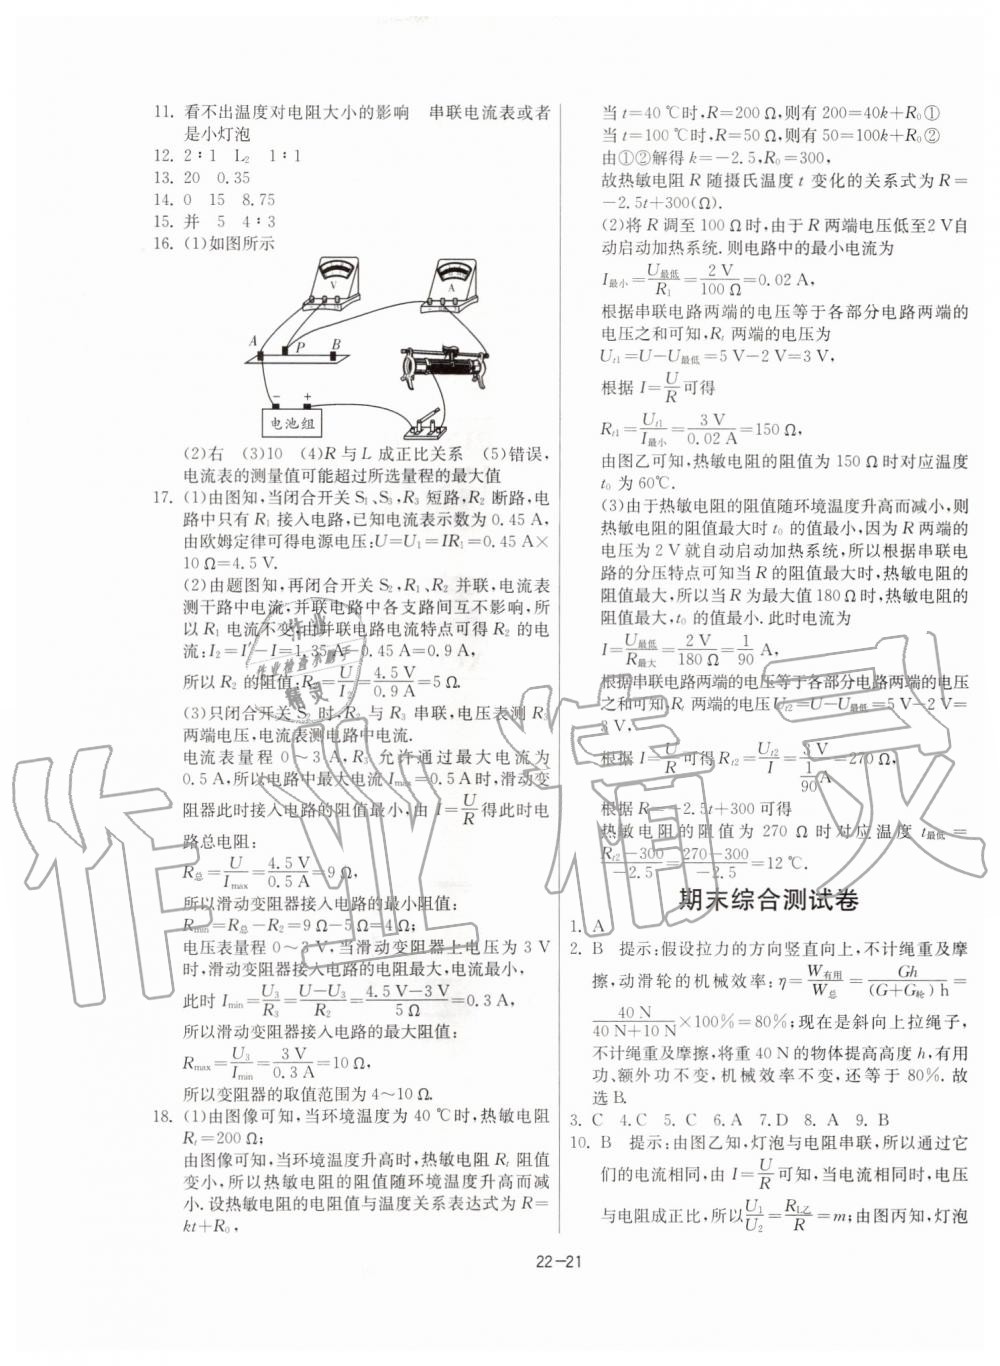 11. 看不出温度对电阻大小的影响　串联电流表或者
是小灯泡
12. 2∶1　L₂　1∶1
13. 20　0.35
14. 0　15　8.75
15. 并　5　4∶3
16. (1)如图所示
V
A
A
P
B
－　＋
电池组
(2)右　(3)10　(4)R 与 L 成正比关系　(5)错误,
电流表的测量值可能超过所选量程的最大值
17. (1)由图知,当闭合开关 S₁、S₃,R₃ 短路,R₂ 断路,电
路中只有 R₁ 接入电路,已知电流表示数为 0.45 A,
由欧姆定律可得电源电压:U=U₁=IR₁=0.45 A×
10 Ω=4.5 V.
(2)由题图知,再闭合开关 S₂,R₁、R₂ 并联,电流表
测干路中电流,并联电路中各支路间互不影响,所
以 R₁ 电流不变,由并联电路电流特点可得 R₂ 的电
流:I₂=I′-I=1.35 A-0.45 A=0.9 A,
所以 R₂ 的阻值:R₂=U/I₂=4.5 V/0.9 A=5 Ω.
(3)只闭合开关 S₂ 时,R₂ 与 R₃ 串联,电压表测 R₃
两端电压,电流表测电路中电流.
电流表量程 0～3 A,R₃ 允许通过最大电流为
0.5 A,所以电路中最大电流 Imax=0.5 A时,滑动变
阻器此时接入电路的阻值最小,由 I=U/R得此时电
路总电阻:
R总=U/Imax=4.5 V/0.5 A=9 Ω,
所以滑动变阻器接入电路的最小阻值:
Rmin=R总-R₂=9 Ω-5 Ω=4 Ω;
电压表量程 0～3 V,当滑动变阻器上电压为 3 V
时,滑动变阻器接入电路的电阻最大,电流最小,
此时 Imin=U₃/R₃=(U-U₃)/R₂=(4.5 V-3 V)/5 Ω=0.3 A,
所以滑动变阻器接入电路的最大阻值:
Rmax=U₃/Imin=3 V/0.3 A=10 Ω,
所以变阻器的取值范围为 4～10 Ω.
18. (1)由图像可知,当环境温度为 40 ℃时,热敏电阻
Rt=200 Ω;
由图像可知,当环境温度升高时,热敏电阻 Rt 阻值
变小,所以热敏电阻的阻值随环境温度升高而减
小.设热敏电阻的电阻值与温度关系表达式为 R=
kt+R₀,
当 t=40 ℃时,R=200 Ω,则有 200=40k+R₀①
当 t=100 ℃时,R=50 Ω,则有 50=100k+R₀②
由①②解得 k=-2.5,R₀=300,
故热敏电阻 R 随摄氏温度 t 变化的关系式为 R=
-2.5t+300(Ω).
(2)将 R 调至 100 Ω时,由于 R 两端电压低至2 V自
动启动加热系统.则电路中的最小电流为
I最小=U最低/R₁=2 V/100 Ω=0.02 A,
根据串联电路两端的电压等于各部分电路两端的
电压之和可知,Rt 两端的电压为
Ut1=U-U最低=5 V-2 V=3 V,
根据 I=U/R可得
Rt1=Ut1/I最小=3 V/0.02 A=150 Ω,
由图乙可知,热敏电阻的阻值为 150 Ω时对应温度
t₀ 为60℃.
(3)由于热敏电阻的阻值随环境温度升高而减小,则
热敏电阻的阻值最大时 t₀ 的值最小,因为 R 两端的
电压为 2 V 就自动启动加热系统,所以根据串联电
路的分压特点可知当 R 的阻值最大时,热敏电阻的
阻值最大,所以当 R 为最大值 180 Ω时,热敏电阻的
阻值最大,t₀ 的值最小.此时电流为
I=U最低/R最大=2 V/180 Ω=1/90 A,
根据串联电路两端的电压等于各部分电路两端的电压
之和可知,Rt 两端的电压Ut2=U-U最低=5 V-2 V=
3 V,
根据 I=U/R可得 Rt2=Ut2/I=3 V/(1/90 A)=270 Ω,
根据 R=-2.5t+300 可得
热敏电阻的阻值为 270 Ω 时对应温度 t最低=
(Rt2-300)/-2.5=(270-300)/-2.5=12 ℃.
期末综合测试卷
1. A
2. B　提示:假设拉力的方向竖直向上,不计绳重及摩
擦,动滑轮的机械效率:η=W有用/W总=Gh/(G+G轮)h=
40 N/(40 N+10 N)×100%=80%;现在是斜向上拉绳子,
不计绳重及摩擦,将重 40 N 的物体提高高度 h,有用
功、额外功不变,机械效率不变,还等于 80%.故
选B.
3. C　4. C　5. C　6. A　7. D　8. A　9. B
10. B　提示:由图乙知,灯泡与电阻串联,所以通过它
们的电流相同,由 I=U/R可知,当电流相同时,电压
与电阻成正比,所以U₁/U₂=RL乙/R=m;由图丙知,灯泡
22—21
作业
作业检查小助手
精灵
作业精灵